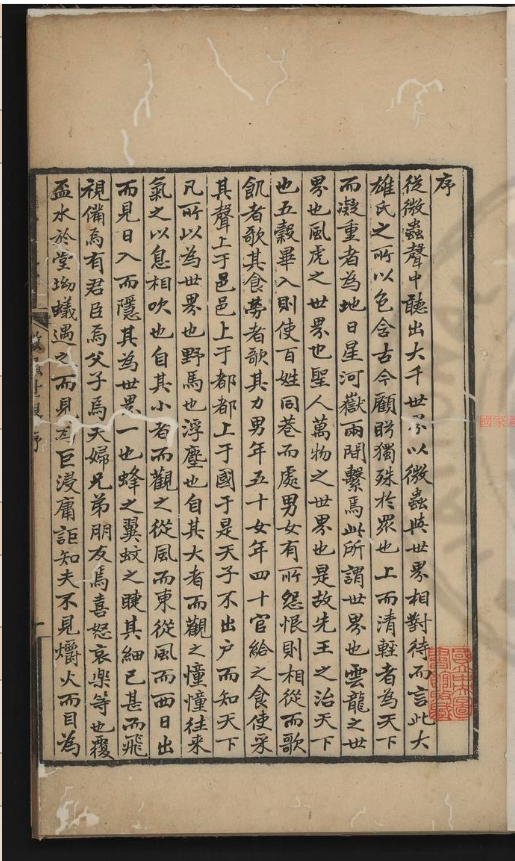 序
從微蟲聲中聽出大千世界以微蟲與世界相對待而言此大
雄氏之所以包含古今顧盻獨殊於眾也上而清輕者為天下
而凝重者為地日星河嶽兩間繫焉此所謂世界也雲龍之世
界也風虎之世界也聖人萬物之世界也是故先王之治天下
也五穀畢入則使百姓同巷而處男女有所怨恨則相從而歌
飢者歌其食勞者歌其力男年五十女年四十官給之食使采
其聲上于邑邑上于都都上于國于是天子不出户而知天下
凡所以為世界也野馬也浮塵也自其大者而觀之憧憧往來
氣之以息相吹也自其小者而觀之從風而東從風而西日出
而見日入而隱其為世界一也蜂之翼蚊之睫其細已甚而飛
視備焉有君臣焉父子焉夫婦兄弟朋友焉喜怒哀樂等也覆
盃水於堂坳蟻遇之而見為巨浸庸詎知夫不見爝火而目為
序
一